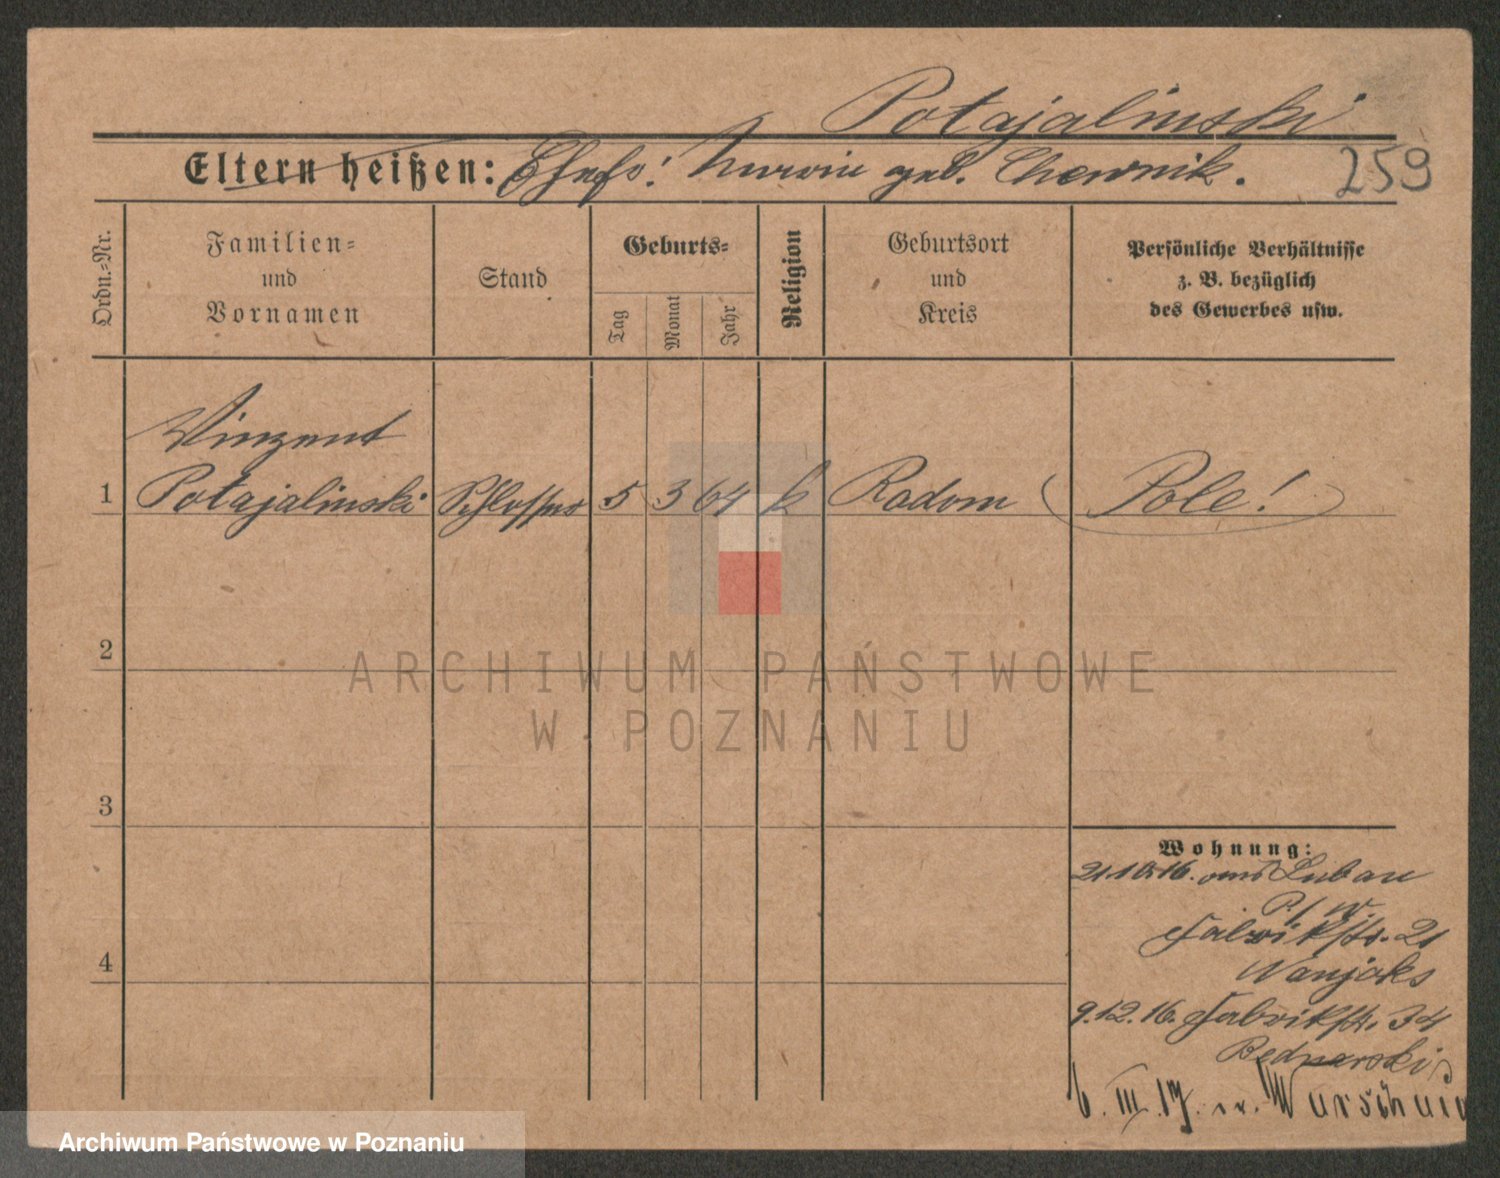 Potajalinski
Eltern heißen: Ehefr: geb. Chewnik.
259
Ordn.=Nr.
Familien=
und
Vornamen
Stand
Geburts=
Tag
Monat
Jahr
Religion
Geburtsort
und
Kreis
Persönliche Verhältnisse
z. B. bezüglich
des Gewerbes usw.
Vinzent
1 Potajalinski Schlosser 5 3 64 k Radom Pole!
2
3
4
Wohnung:
21.10.16. aus Luban
Fabrikstr. 21
Wanjaks
9.12.16. Fabrikstr. 34
Bednarski
6. III. 17. n. Warschau
ARCHIWUM PAŃSTWOWE
W POZNANIU
Archiwum Państwowe w Poznaniu